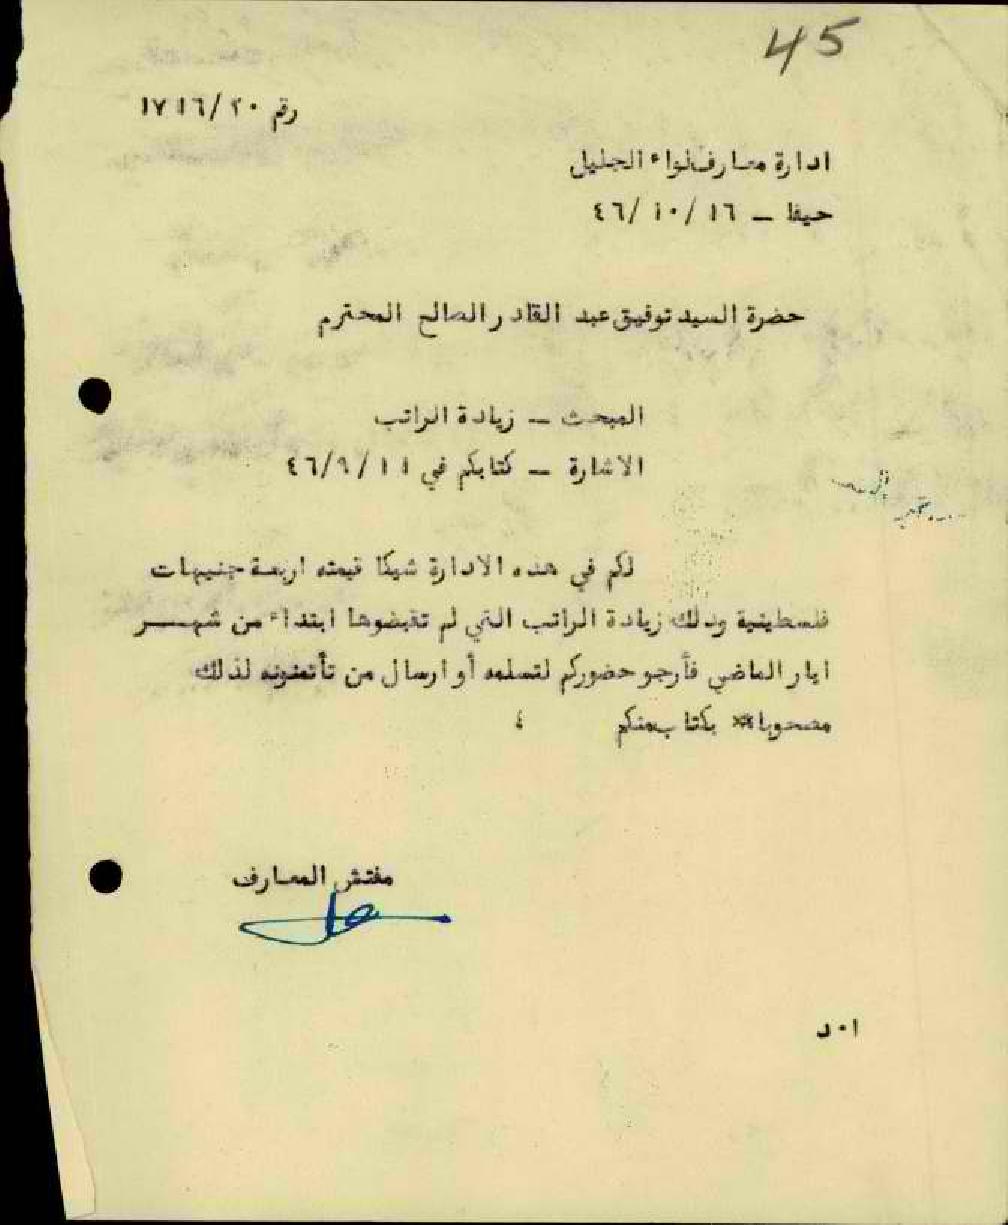 45
رقم ٢٠/١٧١٦
ادارة معارف لواء الجليل
حيفا - ١٦/ ١٠/ ٤٦
حضرة السيد توفيق عبد القادر الصالح المحترم
المبحث - زيادة الراتب
الاشارة - كتابكم في ١١/ ٩/٤٦
لكم في هذه الادارة شيكا قيمته اربعة جنيهات
فلسطينية وذلك زيادة الراتب التي لم تقبضوها ابتداء من شهـــر
ايار الماضي فأرجو حضوركم لتسلمه أو ارسال من تأتمنونه لذلك
مصحوبا بكتاب منكم ،
مفتش المعارف
ا٠د